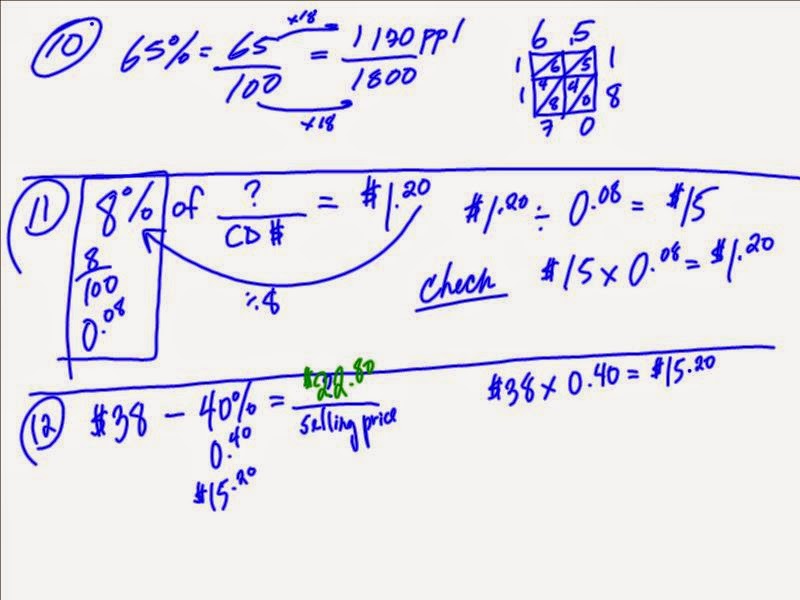 10 65% = 65/100 = 1170 ppl/1800
x18
x18
6 5
1 6 5 1
1 4 8 4 0 8
7 0
11 8% of ?/CD $ = $1.20
8/100
0.08
÷8
$1.20 ÷ 0.08 = $15
Check $15 x 0.08 = $1.20
12 $38 - 40% = $22.80/selling price
0.40
$15.20
$38 x 0.40 = $15.20